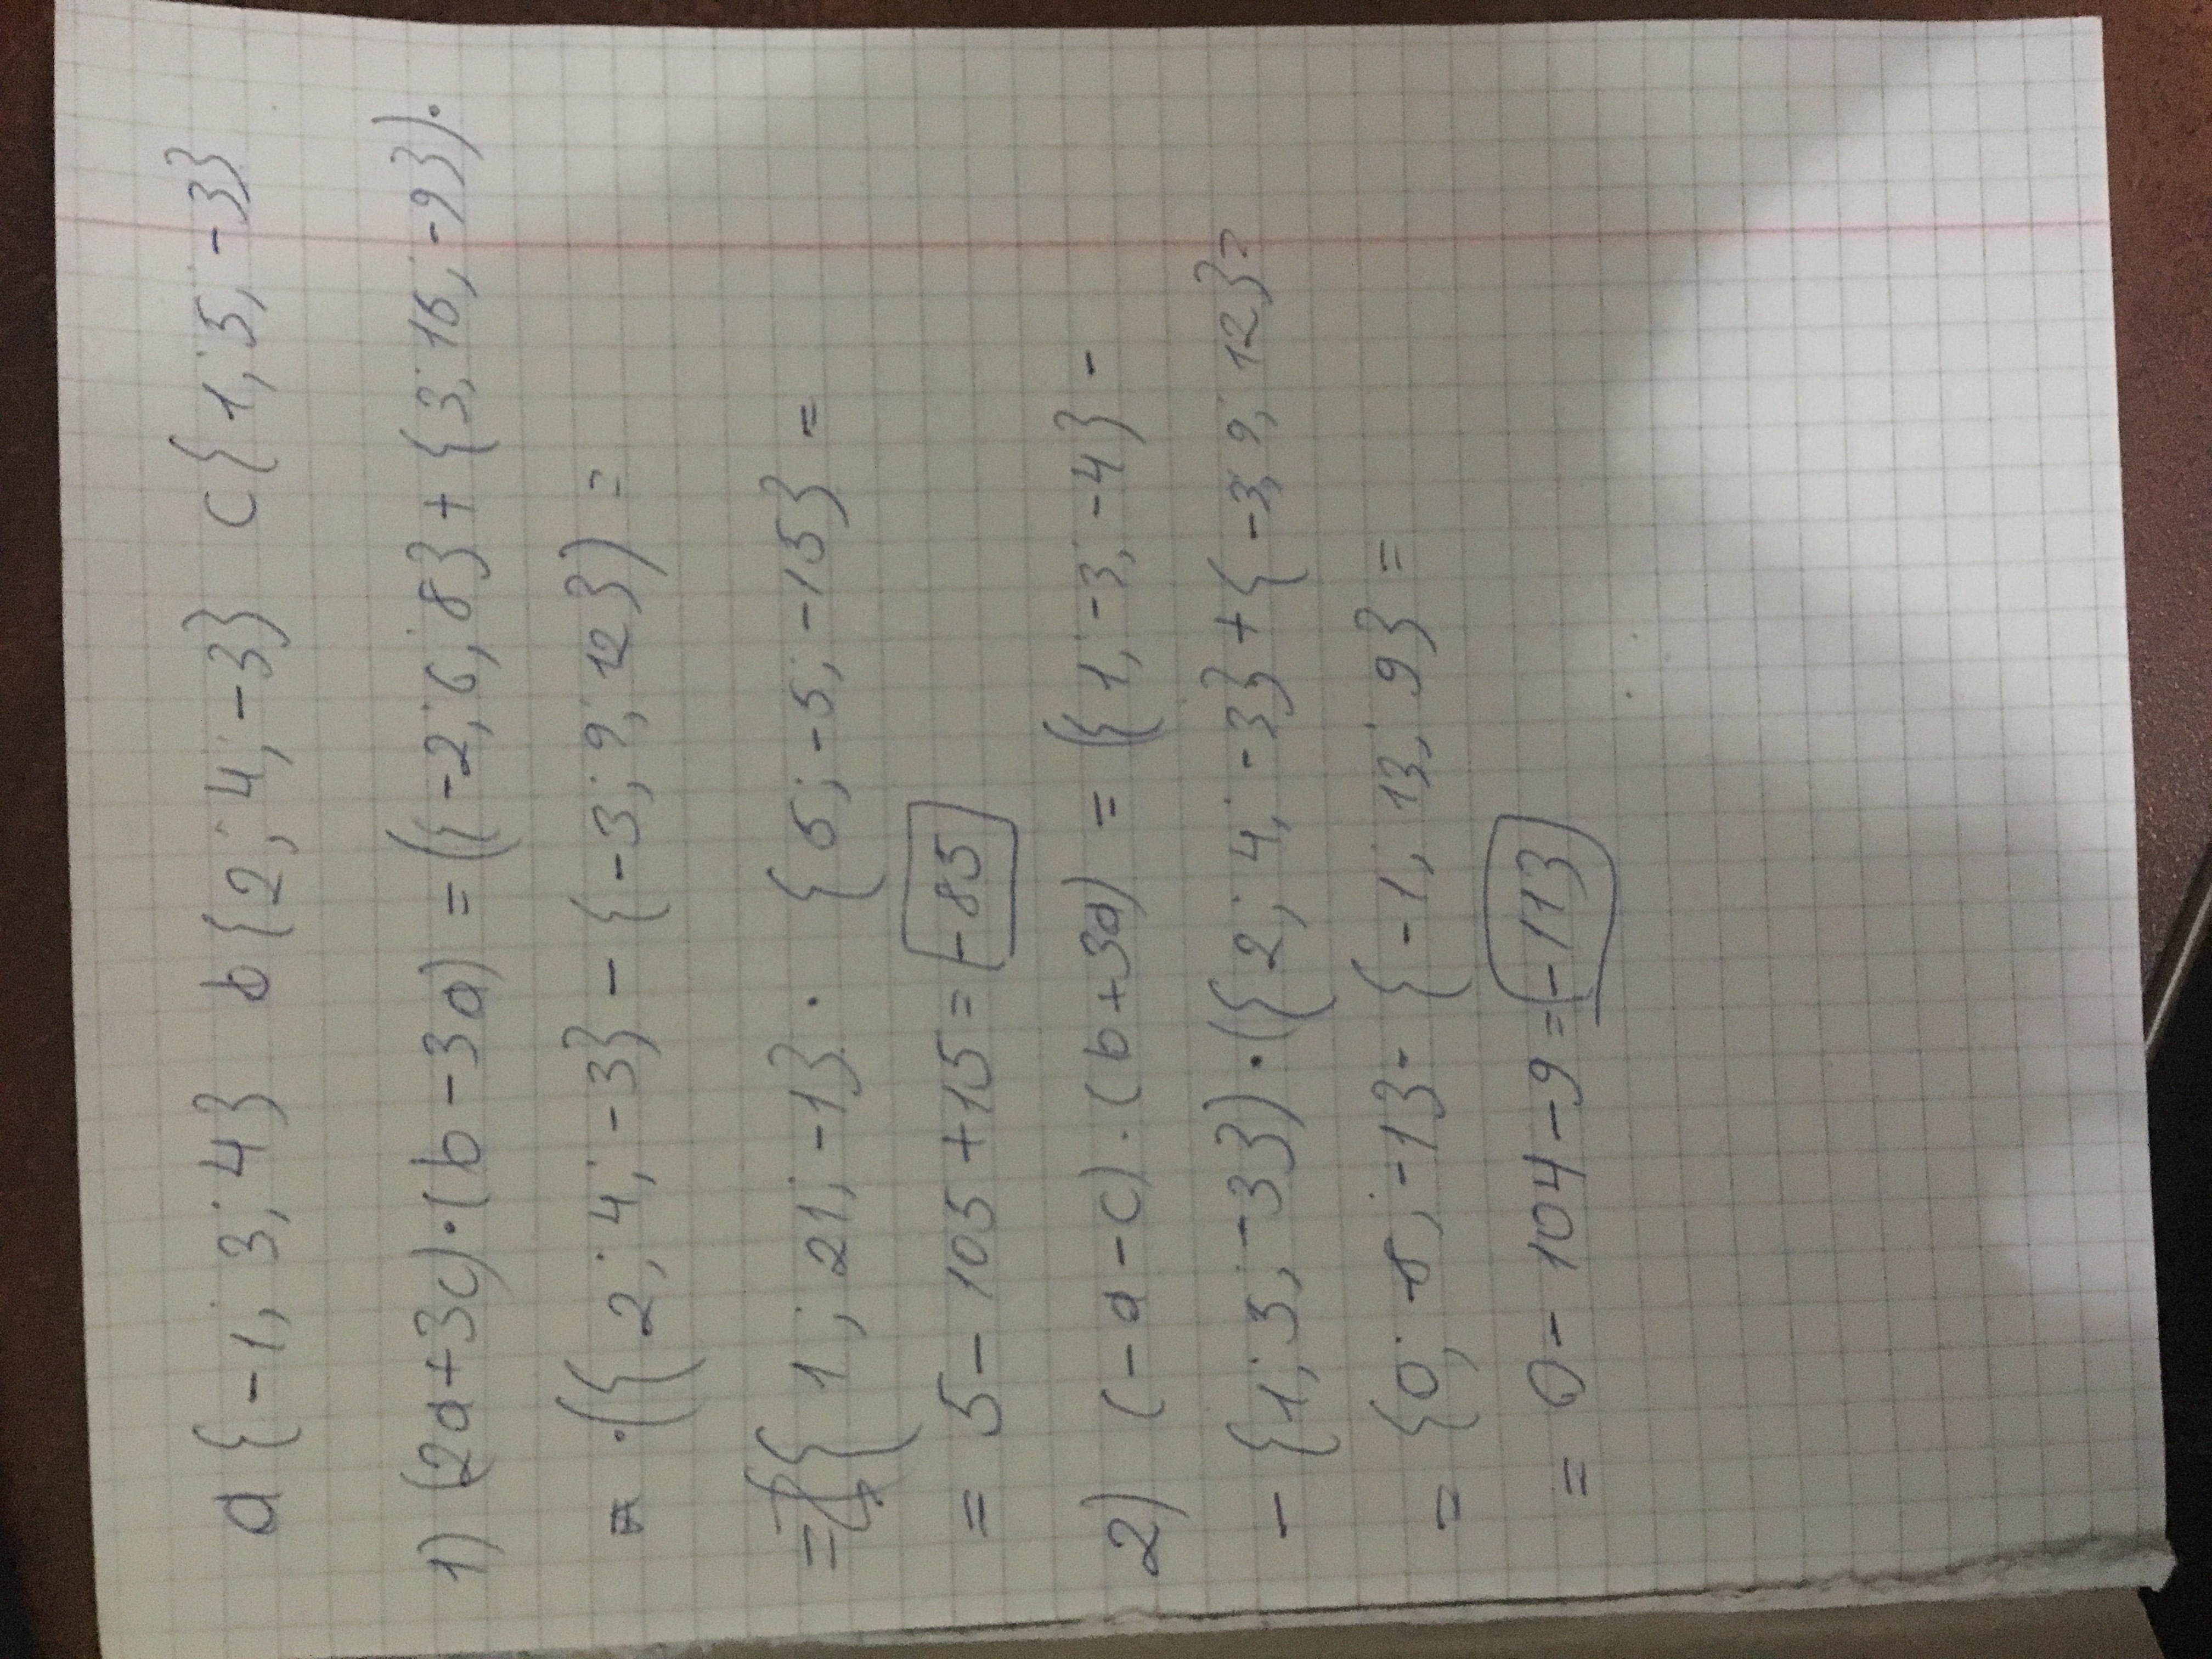 a{-1; 3; 4} b{2; 4; -3} c{1; 5; -3}
1) (2a+3c)·(b-3a) = ({-2; 6; 8}+{3; 15; -9})·
= ·({2; 4; -3}-{-3; 9; 12}) =
={1; 21; -1}· {5; -5; -15} =
= 5-105+15= -85
2) (-a-c)·(b+3a) = ({1; -3; -4}-
-{1; 5; -3})·({2; 4; -3}+{-3; 9; 12}=
= {0; -8; -1}· {-1; 13; 9} =
= 0-104-9=-113